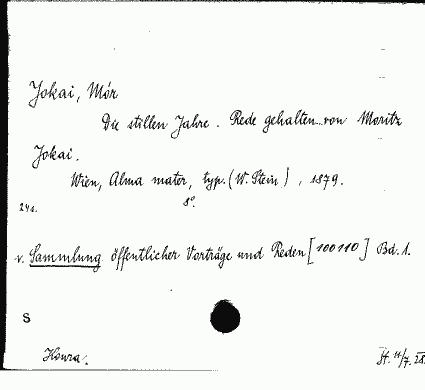 Jokai, Mór
Die stillen Jahre. Rede gehalten von Moritz
Jokai.
Wien, Alma mater, typ. (W. Stein), 1879.
8°.
24s.
v. Sammlung öffentlicher Vorträge und Reden [100110] Bd. 1.
S
St. 11/7. 28.